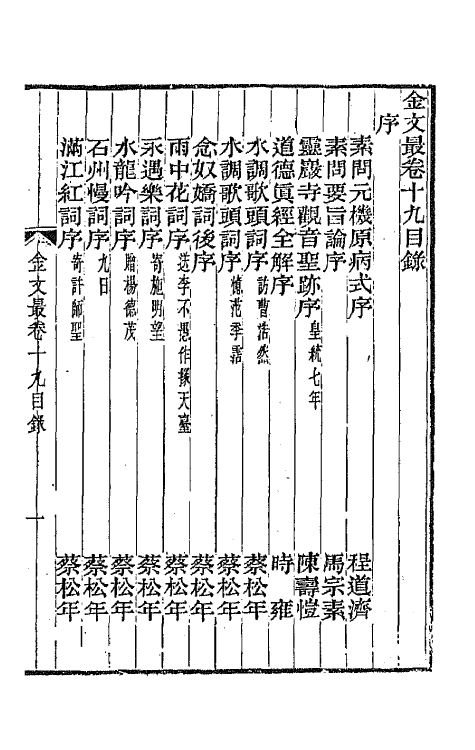 金文最卷十九目錄
序
素問元機原病式序 程道濟
素問要旨論序 馬宗素
靈巖寺觀音聖跡序 皇統七年 陳壽愷
道德眞經全解序 時雍
水調歌頭詞序 訪曹浩然 蔡松年
水調歌頭詞序 憶范季霑 蔡松年
念奴嬌詞後序 蔡松年
雨中花詞序 送李不愚作掾天臺 蔡松年
永遇樂詞序 寄施明望 蔡松年
水龍吟詞序 贈楊德茂 蔡松年
石州慢詞序 九日 蔡松年
滿江紅詞序 寄許師聖 蔡松年
金文最卷十九目錄 一